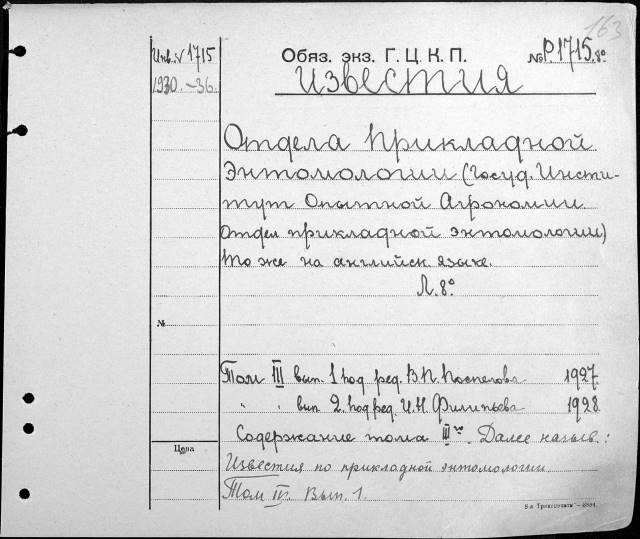 163
Инв. № 1715
1930.-36.
Обяз. экз. Г. Ц. К. П.
№ Р.1715.8°
Известия
Отдела Прикладной
Энтомологии (Госуд. Инсти-
тут Опытной Агрономии.
Отдел прикладной энтомологии)
То же на английск. языке.
Л. 8°
№
Том III вып. 1 под ред. В.П. Поспелова 1927.
" " вып 2. под ред. И.Н. Филипьева 1928.
Содержание тома III го. Далее назыв.:
Цена
Известия по прикладной энтомологии.
Том IV. Вып. 1.